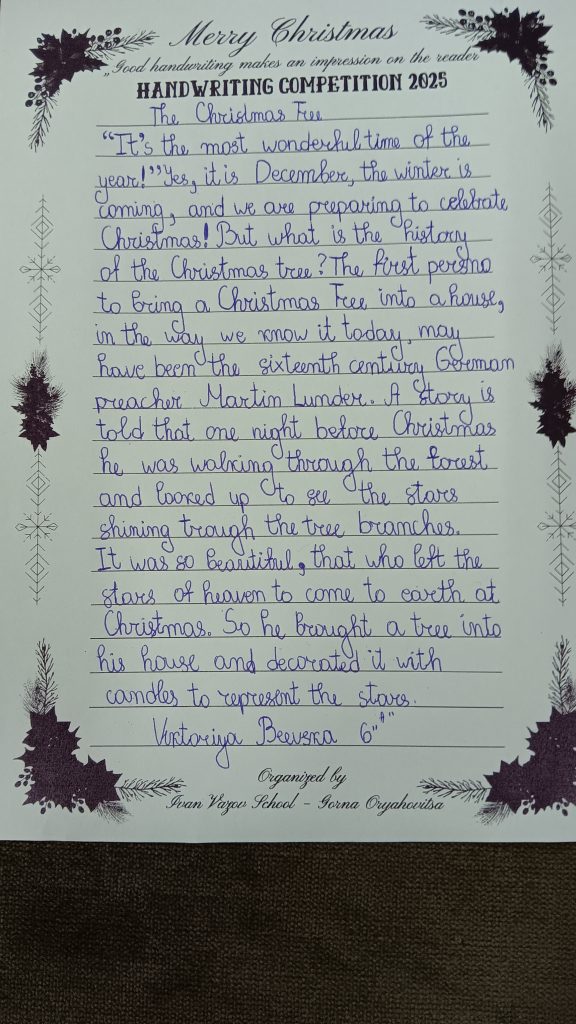 Merry Christmas
„Good handwriting makes an impression on the reader"
HANDWRITING COMPETITION 2025
The Christmas Tree
“It's the most wonderful time of the
year!” Yes, it is December, the winter is
coming, and we are preparing to celebrate
Christmas! But what is the history
of the Christmas tree? The first persno
to bring a Christmas Tree into a house,
in the way we know it today, may
have been the sixteenth century German
preacher Martin Lunder. A story is
told that one night before Christmas
he was walking through the forest
and looked up to see the stars
shining trough the tree branches.
It was so beautiful, that who left the
stars of heaven to come to earth at
Christmas. So he brought a tree into
his house and decorated it with
candles to represent the stars.
Viktoriya Beevska 6"A"
Organized by
Ivan Vazov School - Gorna Oryahovitsa